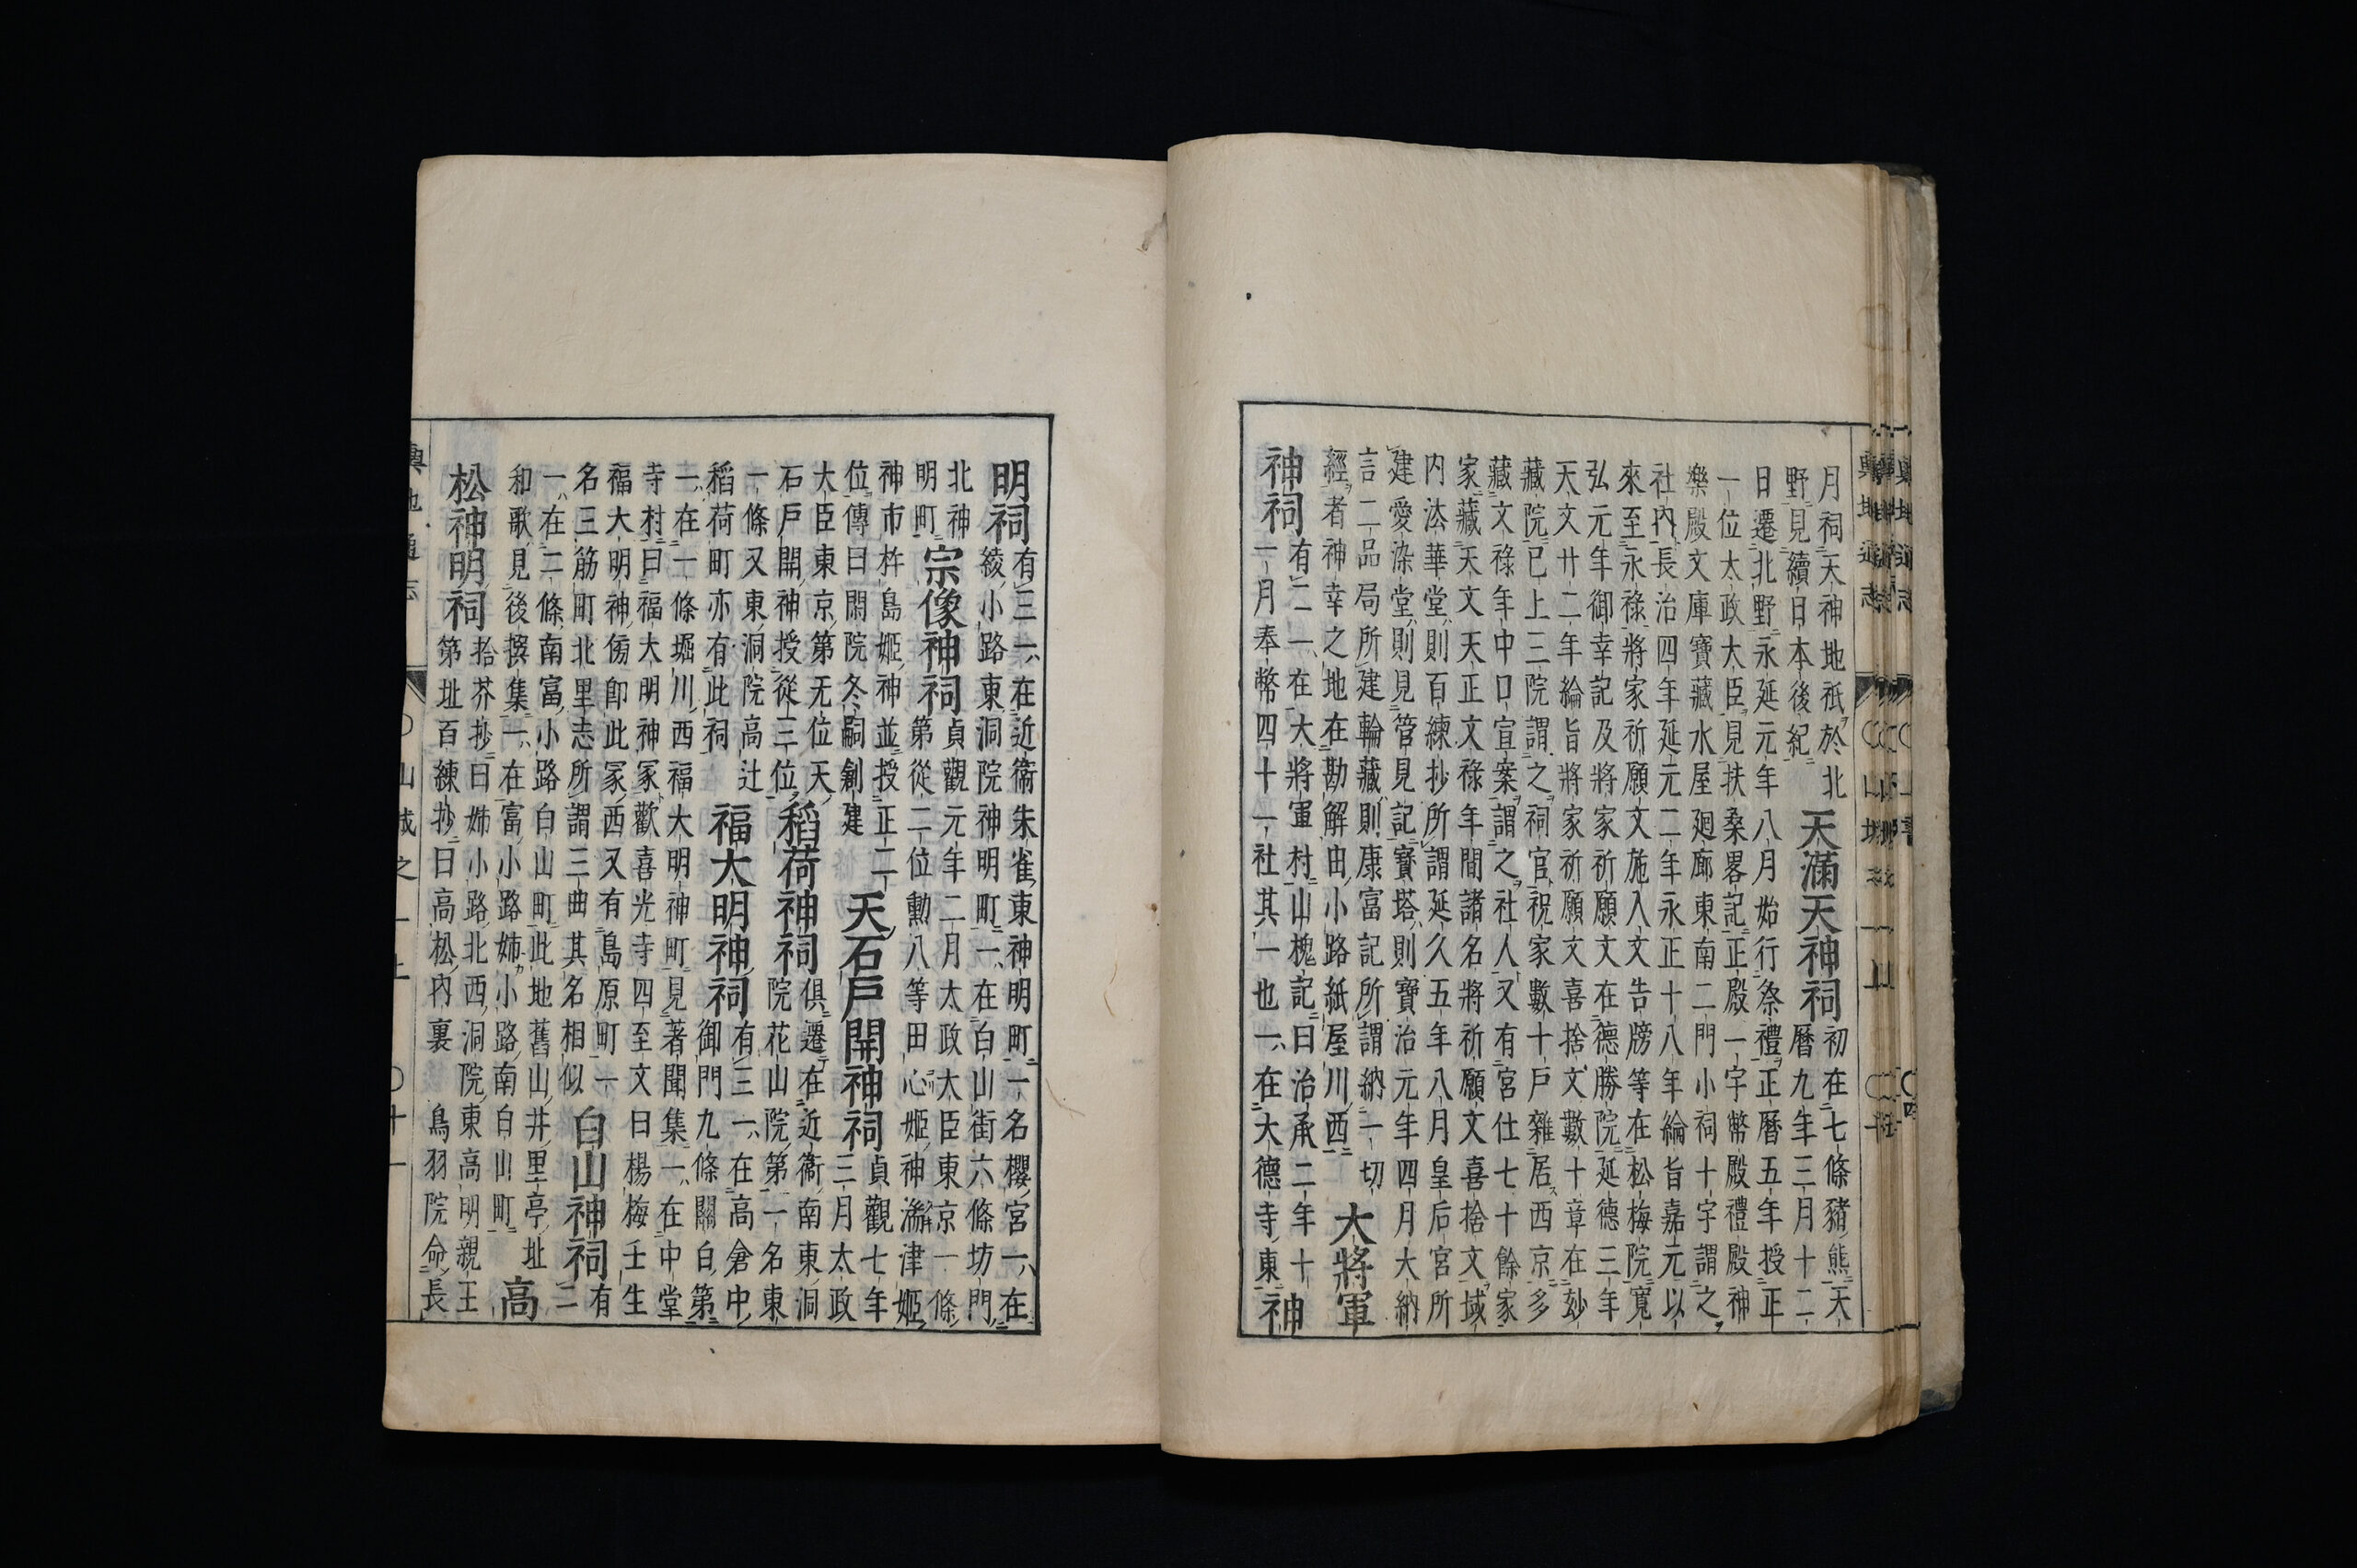 月祠天神地祇於北
野見續日本後紀
天滿天神祠
初在七條猪熊天
曆九年三月十二
日遷北野永延元年八月始行祭禮正曆五年授正
一位太政大臣見扶桑畧記正殿一宇幣殿禮殿神
樂殿文庫寶藏水屋廻廊東南二門小祠十宇謂之
社內長治四年延元二年永正十八年綸旨嘉元以
來至永祿將家祈願文施入文告牓等在松梅院寬
弘元年御幸記及將家祈願文在德勝院延德三年
天文廿二年綸旨將家祈願文喜捨文數十章在玅
藏院已上三院謂之祠官祝家數十戶雜居西京多
藏文祿年中口宣案謂之社人又有宮仕七十餘家
家藏天文天正文祿年間諸名將祈願文喜捨文域
內法華堂則百練抄所謂延久五年八月皇后宮所
建愛染堂則見管見記寶塔則寶治元年四月大納
言二品局所建輪藏則康富記所謂納一切
經者神幸之地在勘解由小路紙屋川西
大將軍
神祠
有二一在大將軍村山槐記曰治承二年十
一月奉幣四十一社其一也一在大德寺東
神
明祠
有三一在近衞朱雀東神明町一名櫻宮一在
綾小路東洞院神明町一在白山街六條坊門
北神
明町
宗像神祠
貞觀元年二月太政大臣東京一條
第從二位勳八等田心姬神湍津姬
神市杵島姬神並授正二
位傳曰閑院冬嗣創建
天石戶開神祠
貞觀七年
三月太政
大臣東京第无位天
石戶開神授從三位
稻荷神祠
俱遷在近衞南東洞
院花山院第一名東
一條又東洞院高辻
稻荷町亦有此祠
福大明神祠
有三一在高倉中
御門九條關白第
一在一條堀川西福大明神町見著聞集一在中堂
寺村曰福大明神冢歡喜光寺四至文曰楊梅壬生
福大明神傍卽此冢西又有島原町一
名三筋町北里志所謂三曲其名相似
白山神祠
有
二
一在二條南富小路白山町此地舊山井里亭址
和歌見後撰集一在富小路姉小路南白山町
高
松神明祠
拾芥抄曰姉小路北西洞院東高明親王
第址百練抄曰高松內裏鳥羽院命長
輿地通志 山城之一上 十一